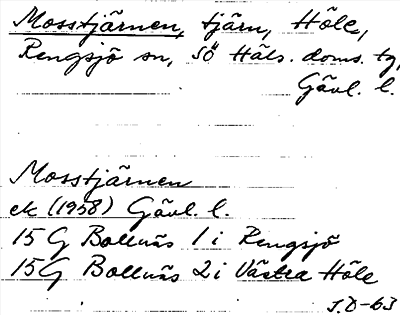 Mosstjärnen, tjärn, Höle,
Rengsjö sn, SÖ Häls. doms. tg,
Gävl. l.
Mosstjärnen
ek (1958) Gävl. l.
15 G Bollnäs 1 i Rengsjö
15G Bollnäs 2 i Västra Höle
J.D-63